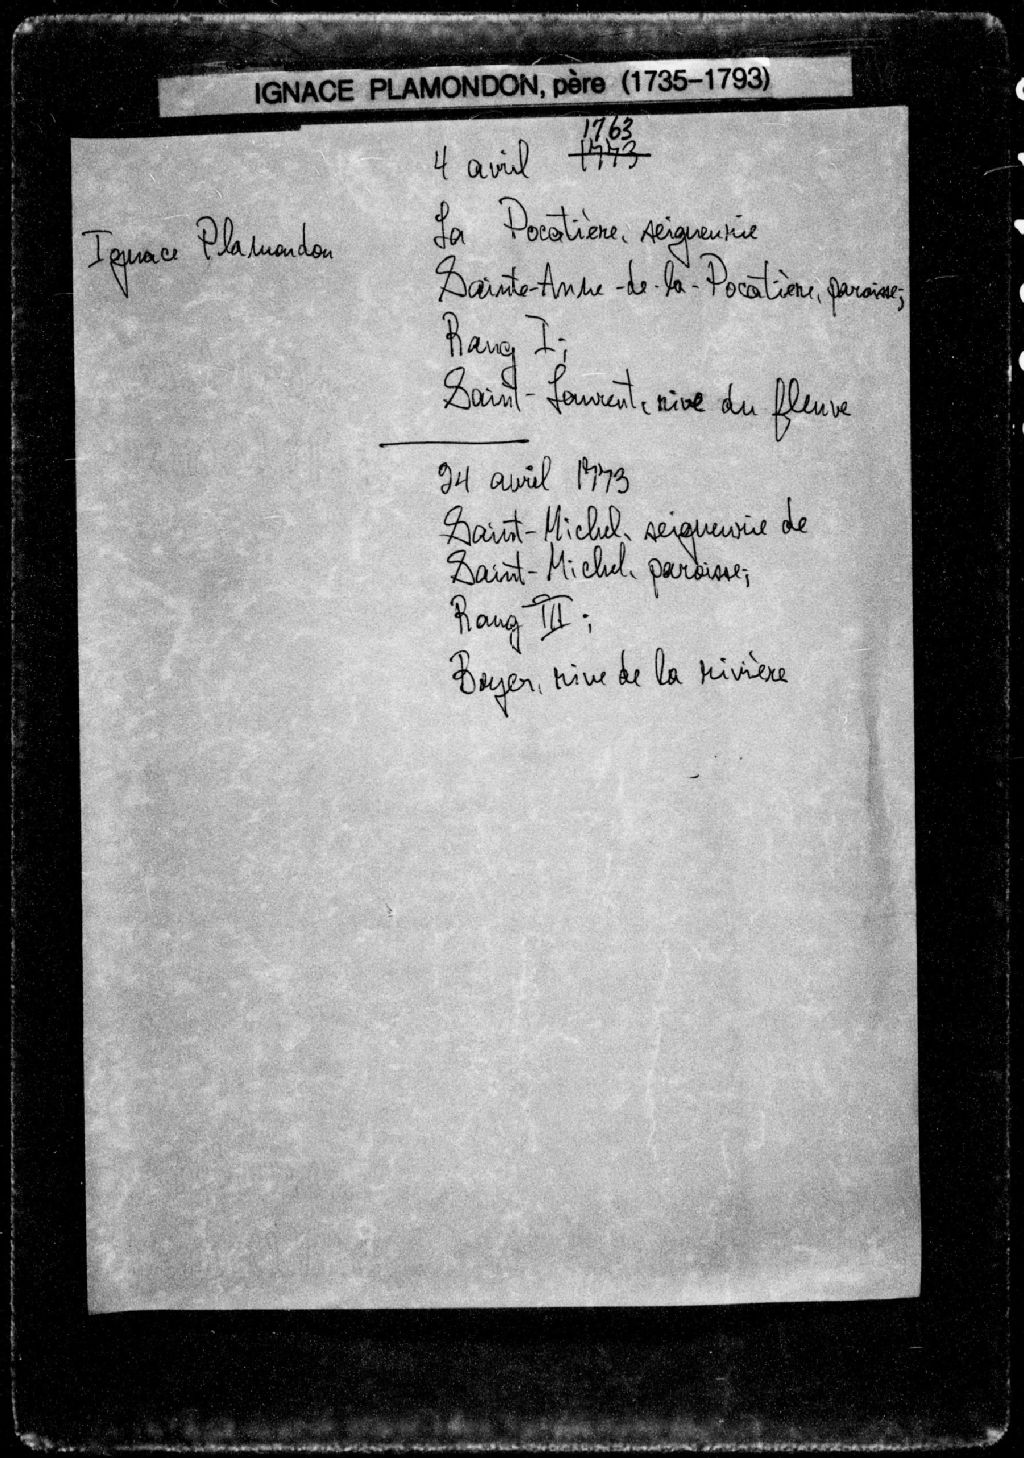 IGNACE PLAMONDON, père (1735–1793)
1763
4 avril 1773
Ignace Plamondon
La Pocatière, seigneurie
Sainte-Anne-de-la-Pocatière, paroisse;
Rang I;
Saint-Laurent, rive du fleuve
24 avril 1773
Saint-Michel, seigneurie de
Saint-Michel, paroisse;
Rang III;
Boyer, rive de la rivière